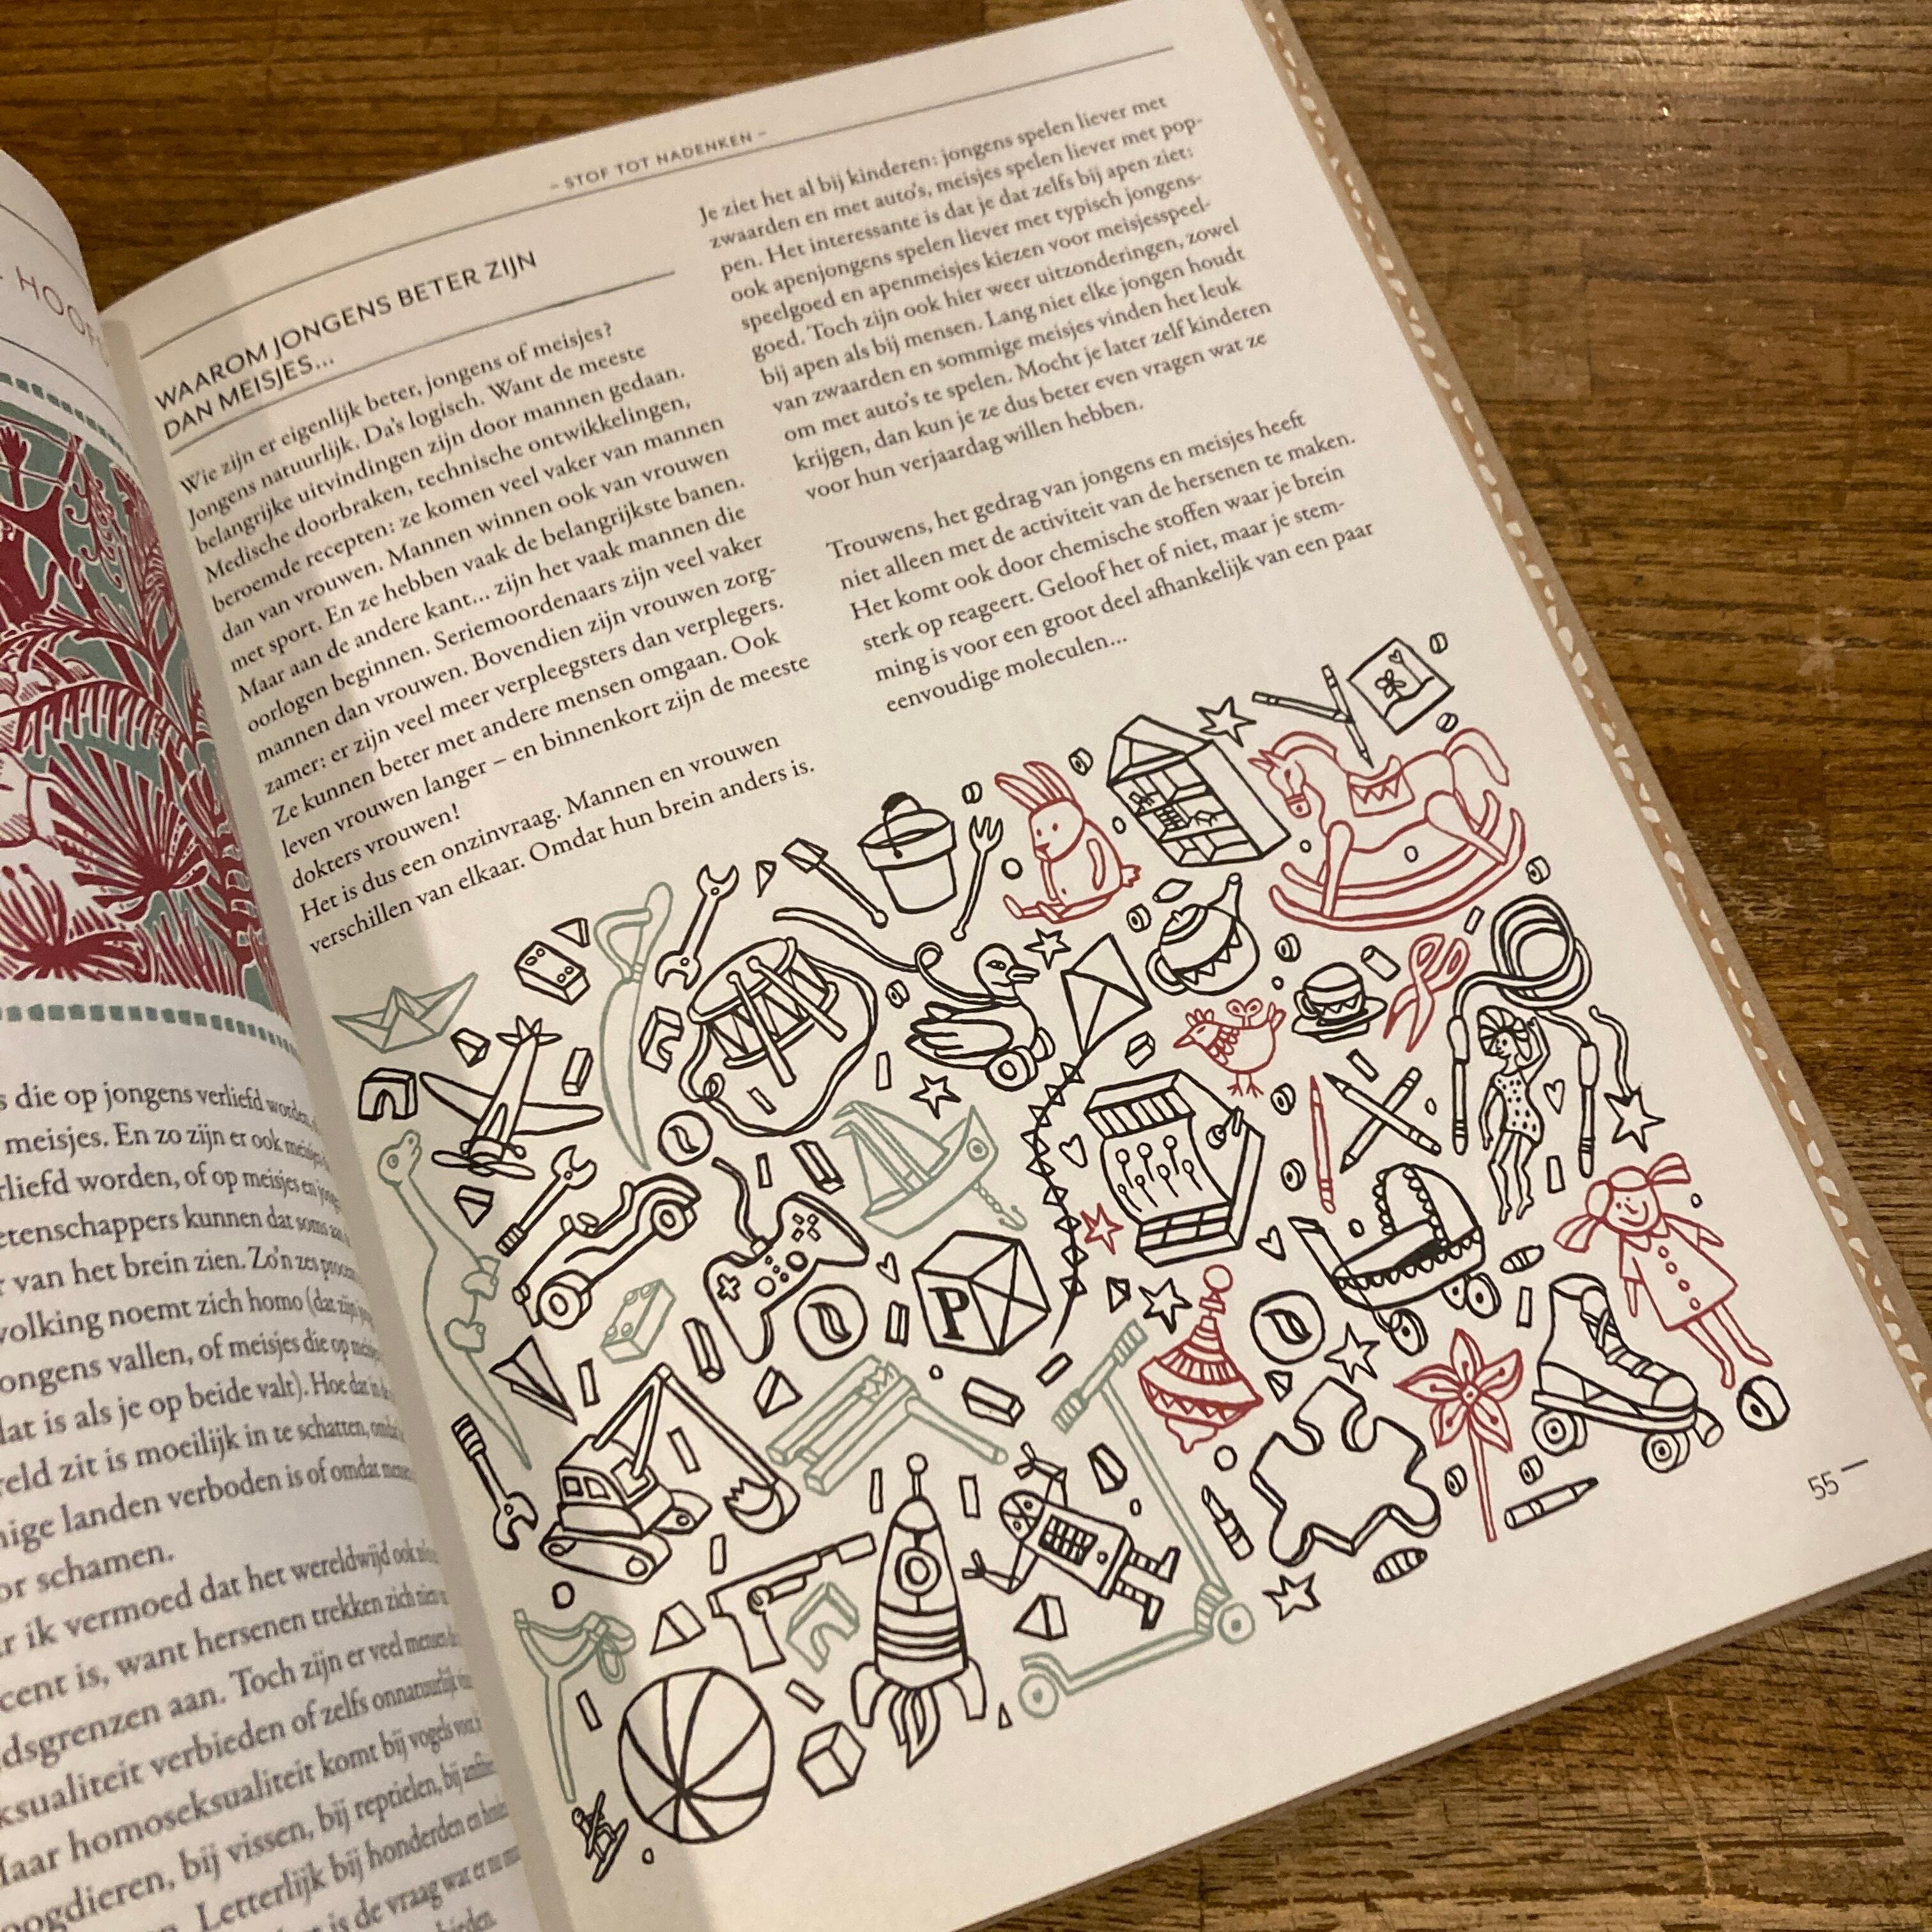 HOOF
s die op jongens verliefd worden,
meisjes. En zo zijn er ook
rliefd worden, of op meisjes en
etenschappers kunnen dat soms
r van het brein zien. Zo'n zes
volking noemt zich homo (dat zijn
ongens vallen, of meisjes die op
dat is als je op beide valt). Hoe dat in de
reld zit is moeilijk in te schatten,
nige landen verboden is of omdat
or schamen.
r ik vermoed dat het wereldwijd ook
cent is, want hersenen trekken zich
dsgrenzen aan. Toch zijn er veel
ksualiteit verbieden of zelfs onnatuurlijk
Maar homoseksualiteit komt bij vogels voor,
oogdieren, bij vissen, bij reptielen, bij
Letterlijk bij honderden en
is de vraag wat er nu
– STOF TOT NADENKEN –
WAAROM JONGENS BETER ZIJN
DAN MEISJES...
Wie zijn er eigenlijk beter, jongens of meisjes?
Jongens natuurlijk. Da's logisch. Want de meeste
belangrijke uitvindingen zijn door mannen gedaan.
Medische doorbraken, technische ontwikkelingen,
beroemde recepten: ze komen veel vaker van mannen
dan van vrouwen. Mannen winnen ook van vrouwen
met sport. En ze hebben vaak de belangrijkste banen.
Maar aan de andere kant... zijn het vaak mannen die
oorlogen beginnen. Seriemoordenaars zijn veel vaker
mannen dan vrouwen. Bovendien zijn vrouwen zorg-
zamer: er zijn veel meer verpleegsters dan verplegers.
Ze kunnen beter met andere mensen omgaan. Ook
leven vrouwen langer – en binnenkort zijn de meeste
dokters vrouwen!
Het is dus een onzinvraag. Mannen en vrouwen
verschillen van elkaar. Omdat hun brein anders is.
Je ziet het al bij kinderen: jongens spelen liever met
zwaarden en met auto's, meisjes spelen liever met pop-
pen. Het interessante is dat je dat zelfs bij apen ziet:
ook apenjongens spelen liever met typisch jongens-
speelgoed en apenmeisjes kiezen voor meisjesspeel-
goed. Toch zijn ook hier weer uitzonderingen, zowel
bij apen als bij mensen. Lang niet elke jongen houdt
van zwaarden en sommige meisjes vinden het leuk
om met auto's te spelen. Mocht je later zelf kinderen
krijgen, dan kun je ze dus beter even vragen wat ze
voor hun verjaardag willen hebben.
Trouwens, het gedrag van jongens en meisjes heeft
niet alleen met de activiteit van de hersenen te maken.
Het komt ook door chemische stoffen waar je brein
sterk op reageert. Geloof het of niet, maar je stem-
ming is voor een groot deel afhankelijk van een paar
eenvoudige moleculen...
P
55 –